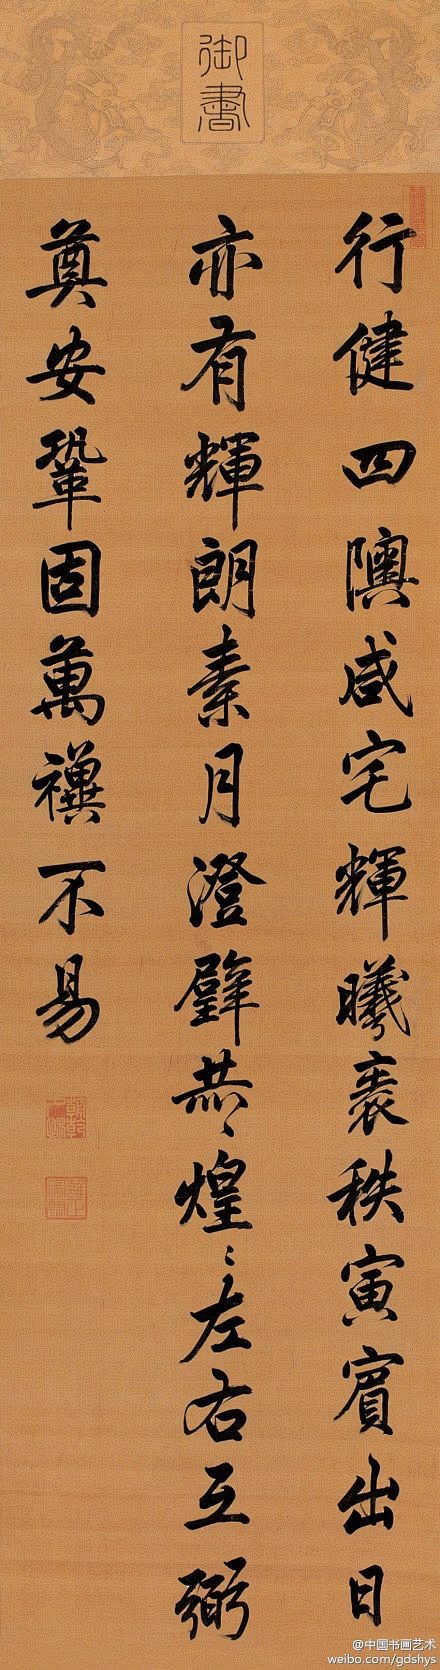 御書
行健四隩咸宅輝曦秩寅賓出日
亦有輝朗素月澄璧煌〻左右互弼
奠安鞏固萬禩不易
@中国书画艺术
weibo.com/gdshys